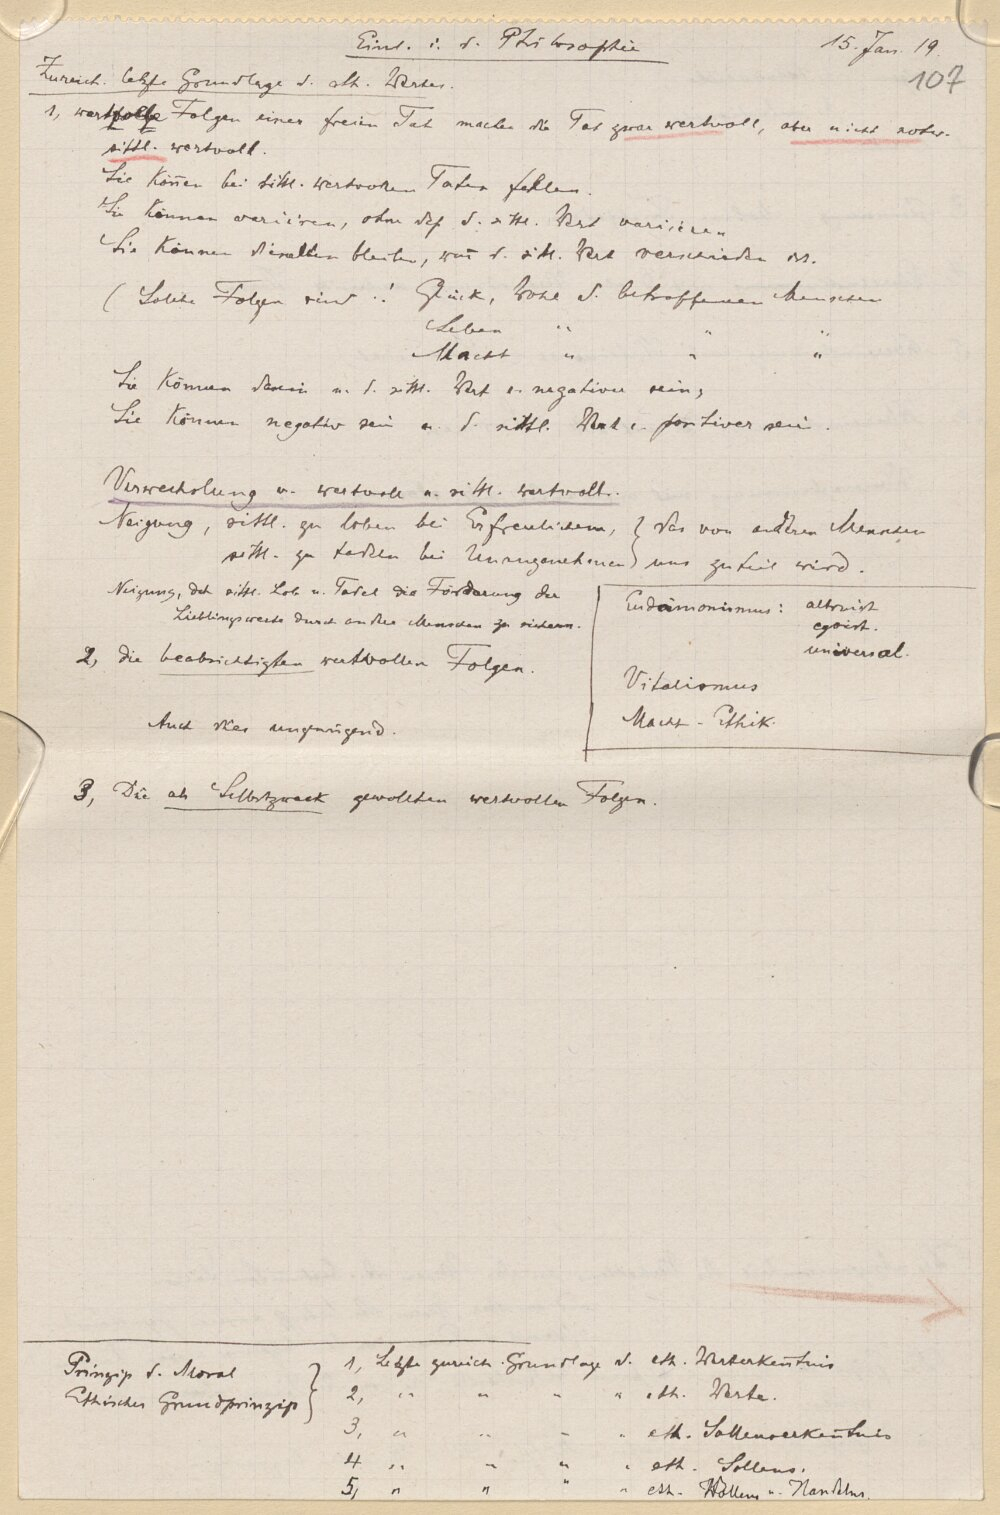 Einl. i. d. Philosophie
15. Jan. 19.
107
Zureich. letzte Grundlage d. eth. Wertes.
1, wertvolle Folgen einer freien Tat machen die Tat zwar wertvoll, aber nicht notw.
sittl. wertvoll.
Sie können bei sittl. wertvollen Taten fehlen.
Sie können variieren, ohne daß d. sittl. Wert variieren
Sie können dieselben bleiben, wäh d. sittl. Wert verschieden ist.
( Solche Folgen sind : ! Glück, Wohl d. betroffenen Menschen
Leben " " "
Macht " " "
Sie können darin u. d. sittl. Wert e. negativer sein,
Sie können negativ sein u. d. sittl. Wert e. positiver sein.
Verwechslung v. wertvoll u. sittl. wertvoll.
Neigung, sittl. zu loben bei Erfreulichem, } das von anderen Menschen
sittl. zu tadeln bei Unangenehmen } uns zuteil wird.
Neigung, dch sittl. Lob u. Tadel die Förderung der
Lieblingswerte durch andre Menschen zu sichern.
Eudämonismus: altruist
egoist.
universal.
Vitalismus
Macht-Ethik.
2, die beabsichtigten wertvollen Folgen.
Auch dies ungenügend.
3, Die als Selbstzweck gewollten wertvollen Folgen.
Prinzip d. Moral
Ethisches Grundprinzip }
1, Letzte zureich. Grundlage d. eth. Werterkenntnis
2, " " " " eth. Werte.
3, " " " " eth. Sollenserkenntnis
4 " " " " eth. Sollens.
5, " " " " eth. Wollens u. Handelns.